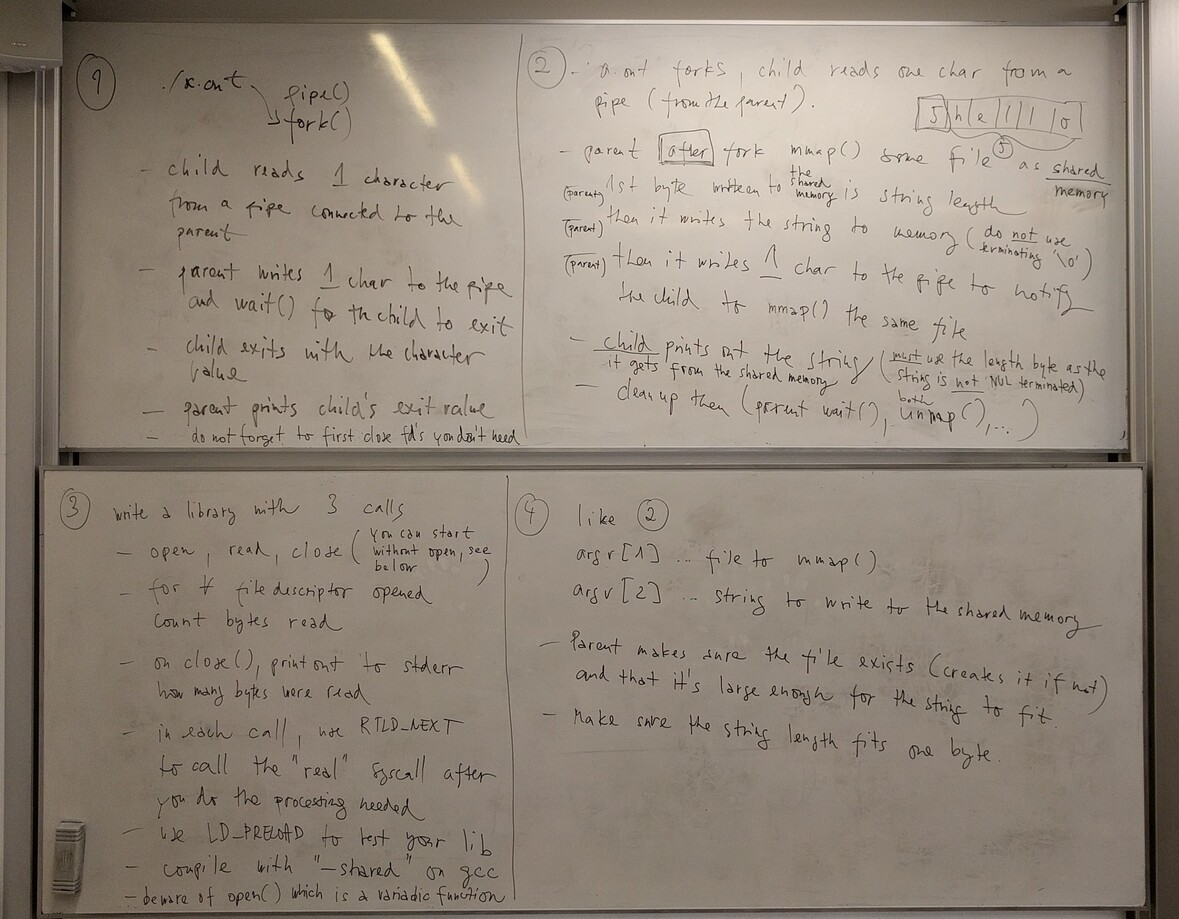 1
./a.out
pipe()
fork()
- child reads 1 character
from a pipe connected to the
parent
- parent writes 1 char to the pipe
and wait() for th child to exit
- child exits with the character
value
- parent prints child's exit value
- do not forget to first close fd's you don't need
2 - a.out forks, child reads one char from a
pipe (from the parent).
5 h e l l o
5
- parent after fork mmap() some file as shared
memory
(parent) 1st byte written to the shared memory is string length
(parent) then it writes the string to memory (do not use
terminating '\0')
(parent) then it writes 1 char to the pipe to notify
the child to mmap() the same file
- child prints out the string (must use the length byte as the
it gets from the shared memory string is not NUL terminated)
- clean up then (parent wait(), both unmap(), ...)
3 write a library with 3 calls
- open, read, close (you can start
without open, see
below)
- for ∀ file descriptor opened
count bytes read
- on close(), print out to stderr
how many bytes were read
- in each call, use RTLD_NEXT
to call the "real" syscall after
you do the processing needed
- use LD_PRELOAD to test your lib
- compile with "-shared" on gcc
- beware of open() which is a variadic function
4 like 2
argv[1] ... file to mmap()
argv[2] ... string to write to the shared memory
- Parent makes sure the file exists (creates it if not)
and that it's large enough for the string to fit.
- Make sure the string length fits one byte.